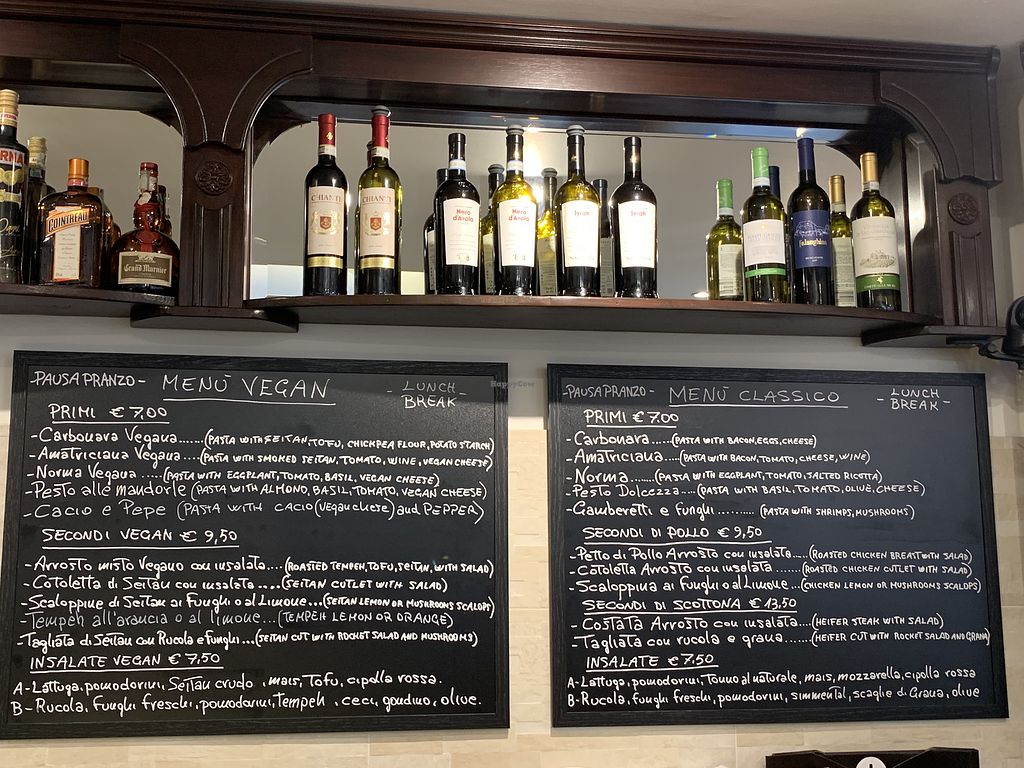 COINTREAU
Grand Marnier
CHIANTI
CHIANTI
Nero d'Avola
Nero d'Avola
Syrah
Syrah
HappyCow
-PAUSA PRANZO- MENÙ VEGAN - LUNCH BREAK -
PRIMI € 7,00
-Carbonara Vegana......(PASTA WITH SEITAN, TOFU, CHICKPEA FLOUR, POTATO STARCH)
-Amatriciana Vegana....(PASTA WITH SMOKED SEITAN, TOMATO, WINE, VEGAN CHEESE)
-Norma Vegana....(PASTA WITH EGGPLANT, TOMATO, BASIL, VEGAN CHEESE)
-Pesto alle mandorle (PASTA WITH ALMOND, BASIL, TOMATO, VEGAN CHEESE)
-Cacio e Pepe (PASTA WITH CACIO (vegan chese) and PEPPER)
SECONDI VEGAN € 9,50
-Arrosto misto Vegano con insalata....(ROASTED TEMPEH, TOFU, SEITAN, WITH SALAD)
-Cotoletta di Seitan con insalata....(SEITAN CUTLET WITH SALAD)
-Scaloppine di Seitan ai Funghi o al Limone...(SEITAN LEMON OR MUSHROOMS SCALOPS)
-Tempeh all'arancia o al limone...(TEMPEH LEMON OR ORANGE)
-Tagliata di Seitan con Rucola e Funghi...(SEITAN CUT WITH ROCKET SALAD AND MUSHROOMS)
INSALATE VEGAN € 7,50
A-Lattuga, pomodorini, Seitan crudo, mais, Tofu, cipolla rossa.
B-Rucola, funghi freschi, pomodorini, Tempeh, ceci, olive.
PAUSA PRANZO- MENÙ CLASSICO - LUNCH BREAK -
PRIMI € 7.00
-Carbonara.....(PASTA WITH BACON, EGGS, CHEESE)
-Amatriciana....(PASTA WITH BACON, TOMATO, CHEESE, WINE)
-Norma.....(PASTA WITH EGGPLANT, TOMATO, SALTED RICOTTA)
-Pesto Dolcezza....(PASTA WITH BASIL, TOMATO, OLIVE, CHEESE)
-Gamberetti e funghi.........(PASTA WITH SHRIMPS, MUSHROOMS)
SECONDI DI POLLO € 9,50
-Petto di Pollo Arrosto con insalata....(ROASTED CHICKEN BREAST WITH SALAD)
-Cotoletta Arrosto con insalata......(ROASTED CHICKEN CUTLET WITH SALAD)
-Scaloppina ai Funghi o al Limone...(CHICKEN LEMON OR MUSHROOMS SCALOPS)
SECONDI DI SCOTTONA € 13,50
-Costata Arrosto con insalata....(HEIFER STEAK WITH SALAD)
-Tagliata con rucola e grana......(HEIFER CUT WITH ROCKET SALAD AND GRANA)
INSALATE € 7.50
A-Lattuga, pomodorini, Tonno al naturale, mais, mozzarella, cipolla rossa
B-Rucola, funghi freschi, pomodorini, simmental, scaglie di Grana, olive